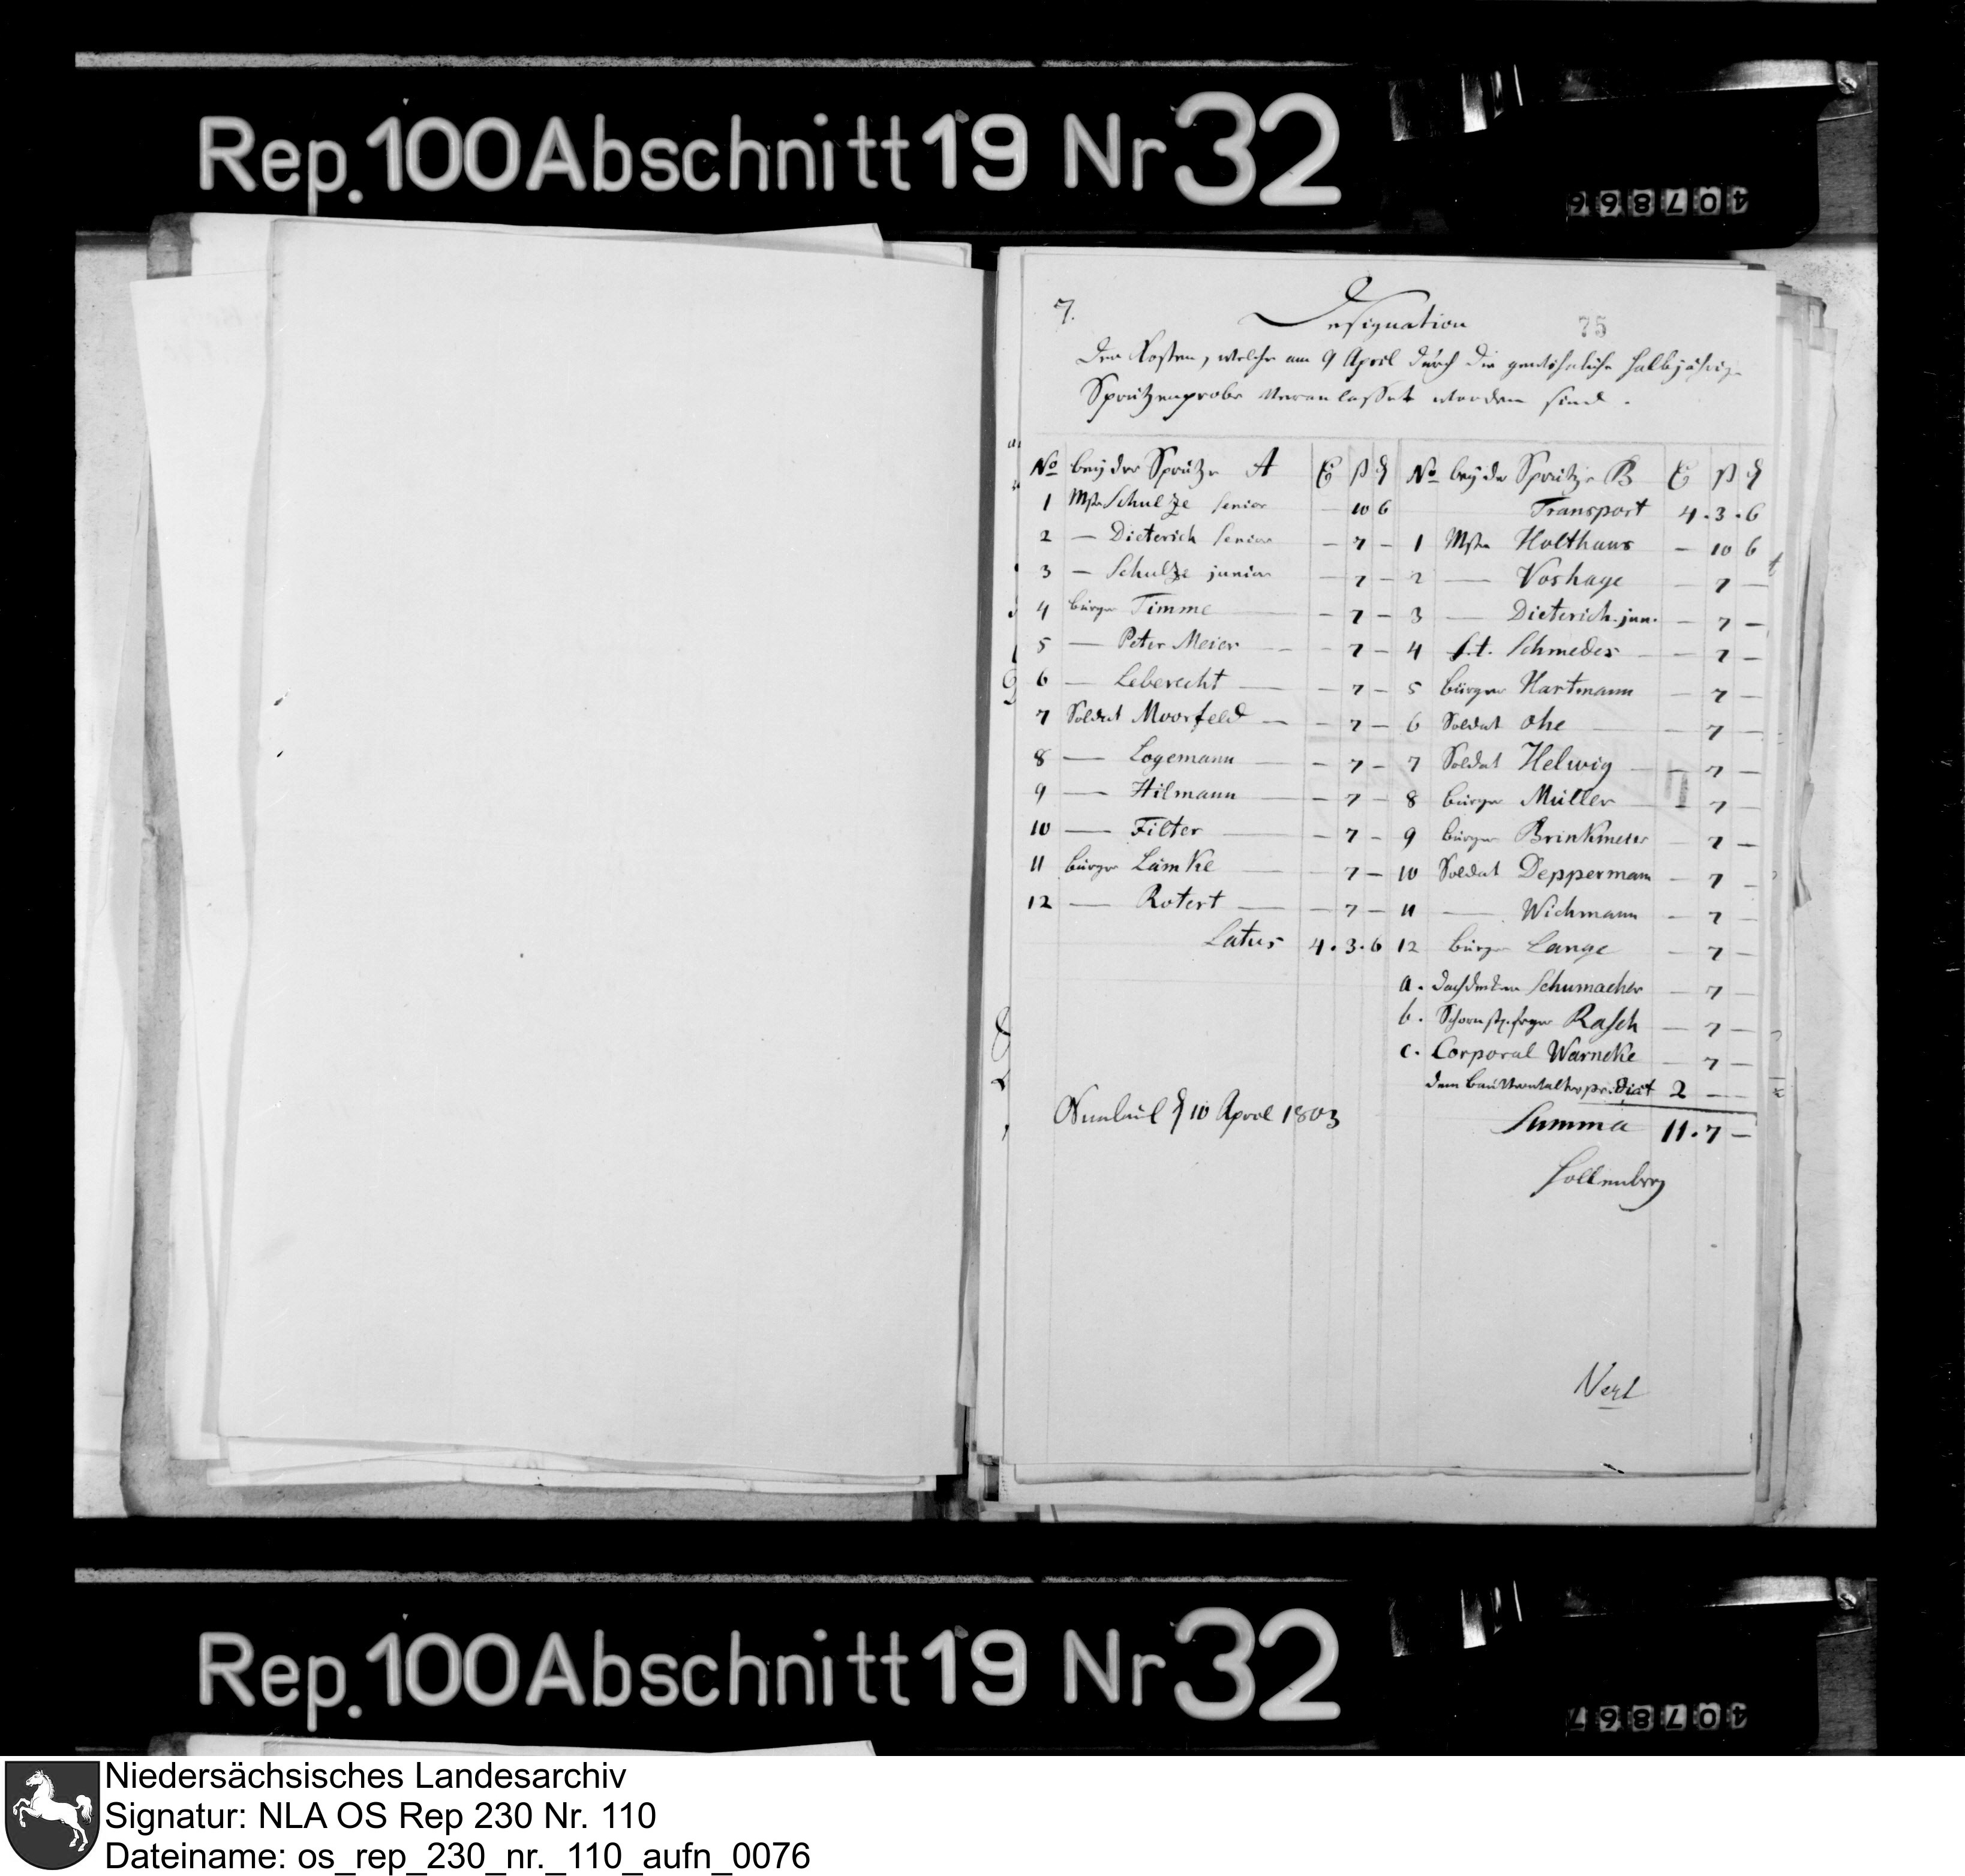 Rep. 100 Abschnitt 19 Nr 32
407866
7.
Designation
75
der Kosten, welche am 9 April durch die gewöhnliche halbjährige
Sprützenprobe veranlasset worden sind.
No bey der Sprütze A ß
1 Mstr Schulze Senior — 10 6
2 — Dieterich Senior — 7 —
3 — Schulze junior — 7 —
4 bürger Timme — 7 —
5 — Peter Meier — 7 —
6 — Leberecht — 7 —
7 Soldat Moorfeld — 7 —
8 — Logemann — 7 —
9 — Hilmann — 7 —
10 — Filter — 7 —
11 bürger Lämke — 7 —
12 — Rotert — 7 —
Latus 4. 3. 6
No bey der Sprütze B ß
Transport 4. 3. 6
1 Mstr Holthaus — 10 6
2 — Voshage — 7 —
3 — Dieterich. jun. — 7 —
4 Schmedes — 7 —
5 bürger Hartmann — 7 —
6 Soldat Ohe — 7 —
7 Soldat Helwig — 7 —
8 bürger Müller — 7 —
9 bürger Brinkmeier — 7 —
10 Soldat Deppermann — 7 —
11 — Wichmann — 7 —
12 bürger Lange — 7 —
a. dachdecker Schumacher — 7 —
b. Schornst.feger Rasch — 7 —
c. Corporal Warneke — 7 —
dem Bauverwalter pr. Diät 2 — —
Summa 11. 7 —
10 April 1803
Hollenberg
Rep. 100 Abschnitt 19 Nr 32
407867
Niedersächsisches Landesarchiv
Signatur: NLA OS Rep 230 Nr. 110
Dateiname: os_rep_230_nr._110_aufn_0076